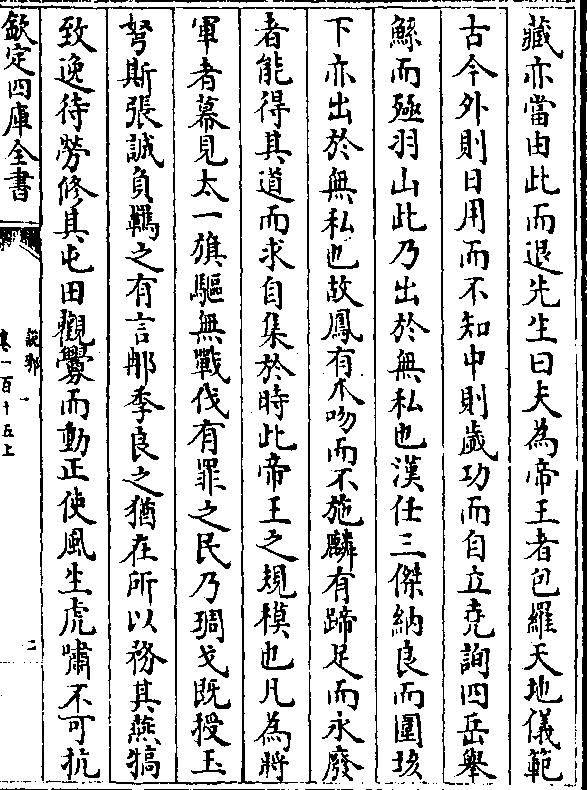 藏亦當由此而退先生曰夫為帝王者包羅天地儀範
古今外則日用而不知中則歲功而自立堯詢四岳舉
鯀而殛羽山此乃出於無私也漢任三傑納良而圍垓
下亦出於無私也故鳳有爪吻而不施麟有蹄足而永廢
者能得其道而求自集於時此帝王之規模也凡為將
軍者幕見太一旗驅無戰伐有罪之民乃琱戈既授玉
弩斯張誠負羈之有言那季良之猶在所以務其燕犒
致逸待勞修其屯田觀釁而動正使風生虎嘯不可抗
欽定四庫全書
說郛
卷一百十五上
二